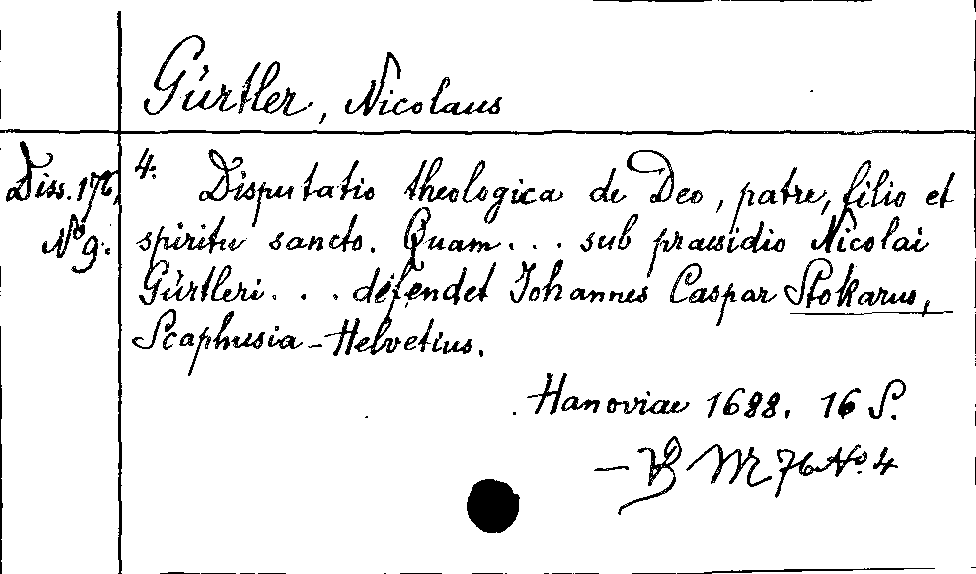 Gürtler, Nicolaus
Diss. 176,
No 9.
4. Disputatio theologica de Deo, patre, filio et
spiritu sancto. Quam . . . sub praesidio Nicolai
Gürtleri . . . defendet Johannes Caspar Stokarus,
Scaphusia-Helvetius.
Hanoviae 1688. 16 S.
76 No. 4